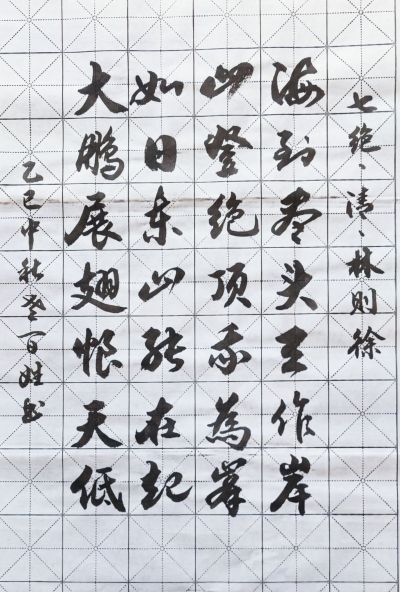 七绝、清、林则徐
海到尽头天作岸
山登绝顶我為峯
如日东山能在起
大鹏展翅恨天低
乙巳中秋老百姓书